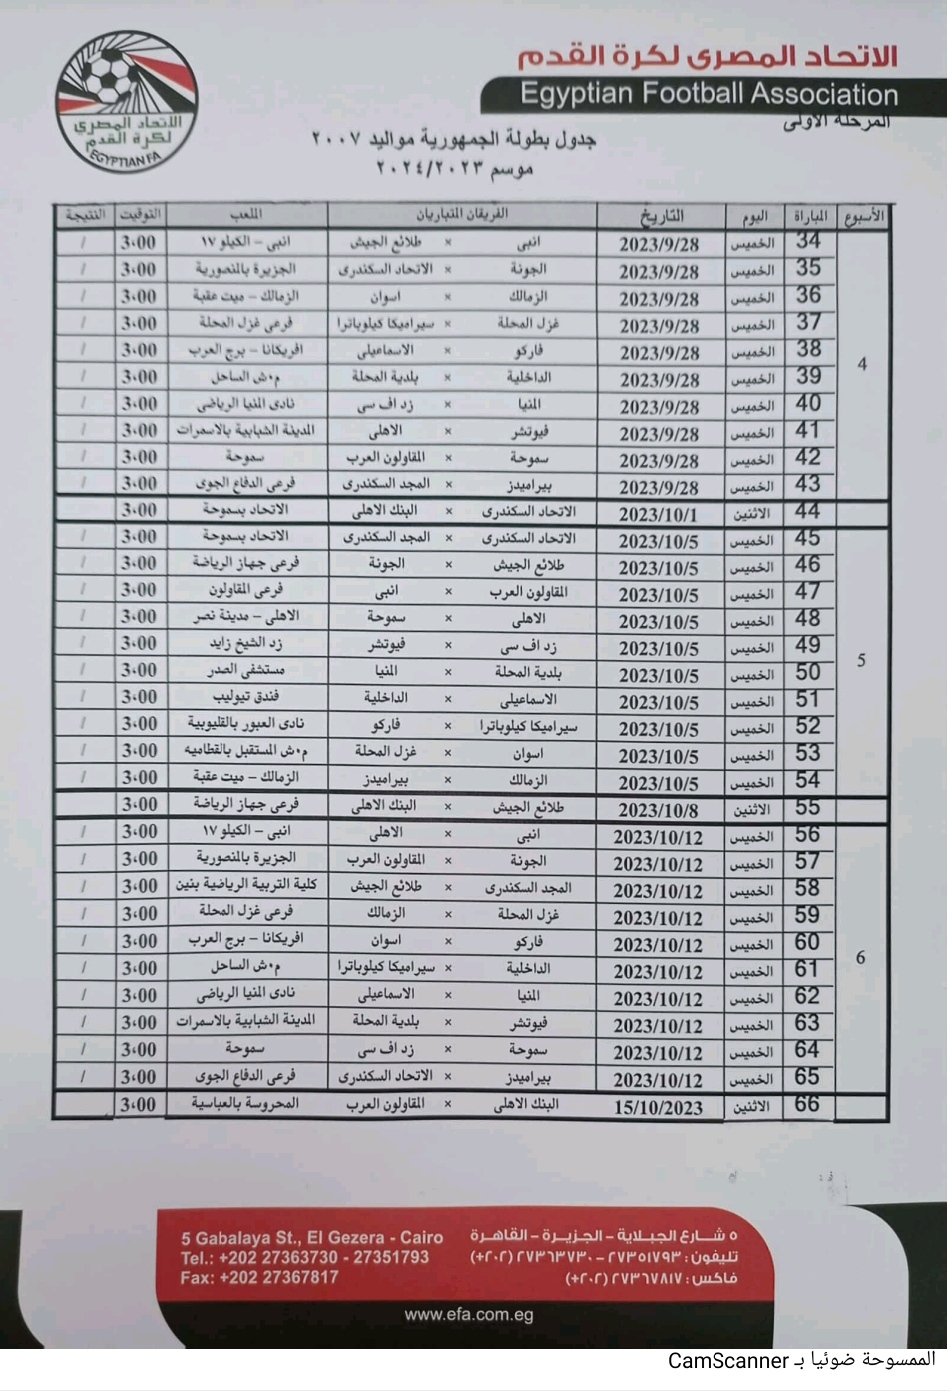 الاتحاد المصرى لكرة القدم
Egyptian Football Association
الاتحاد المصرى
لكرة القدم
EGYPTIAN FA
المرحلة الاولى
جدول بطولة الجمهورية مواليد ٢٠٠٧
موسم ٢٠٢٤/٢٠٢٣
الأسبوع المباراة اليوم التاريخ الفريقان المتباريان الملعب التوقيت النتيجة
34 الخميس 2023/9/28 انبى × طلائع الجيش انبى – الكيلو ١٧ 3:00 /
35 الخميس 2023/9/28 الجونة × الاتحاد السكندرى الجزيرة بالمنصورية 3:00 /
36 الخميس 2023/9/28 الزمالك × اسوان الزمالك – ميت عقبة 3:00 /
37 الخميس 2023/9/28 غزل المحلة × سيراميكا كيلوباترا فرعى غزل المحلة 3:00 /
38 الخميس 2023/9/28 فاركو × الاسماعيلى افريكانا – برج العرب 3:00 /
4
39 الخميس 2023/9/28 الداخلية × بلدية المحلة م.ش الساحل 3:00 /
40 الخميس 2023/9/28 المنيا × زد اف سى نادى المنيا الرياضى 3:00 /
41 الخميس 2023/9/28 فيوتشر × الاهلى المدينة الشبابية بالاسمرات 3:00 /
42 الخميس 2023/9/28 سموحة × المقاولون العرب سموحة 3:00 /
43 الخميس 2023/9/28 بيراميدز × المجد السكندرى فرعى الدفاع الجوى 3:00 /
44 الاثنين 2023/10/1 الاتحاد السكندرى × البنك الاهلى الاتحاد بسموحة 3:00
45 الخميس 2023/10/5 الاتحاد السكندرى × المجد السكندرى الاتحاد بسموحة 3:00 /
46 الخميس 2023/10/5 طلائع الجيش × الجونة فرعى جهاز الرياضة 3:00 /
47 الخميس 2023/10/5 المقاولون العرب × انبى فرعى المقاولون 3:00 /
48 الخميس 2023/10/5 الاهلى × سموحة الاهلى – مدينة نصر 3:00 /
49 الخميس 2023/10/5 زد اف سى × فيوتشر زد الشيخ زايد 3:00 /
5
50 الخميس 2023/10/5 بلدية المحلة × المنيا مستشفى الصدر 3:00 /
51 الخميس 2023/10/5 الاسماعيلى × الداخلية فندق تيوليب 3:00 /
52 الخميس 2023/10/5 سيراميكا كيلوباترا × فاركو نادى العبور بالقليوبية 3:00 /
53 الخميس 2023/10/5 اسوان × غزل المحلة م.ش المستقبل بالقطاميه 3:00 /
54 الخميس 2023/10/5 الزمالك × بيراميدز الزمالك – ميت عقبة 3:00 /
55 الاثنين 2023/10/8 طلائع الجيش × البنك الاهلى فرعى جهاز الرياضة 3:00
56 الخميس 2023/10/12 انبى × الاهلى انبى – الكيلو ١٧ 3:00 /
57 الخميس 2023/10/12 الجونة × المقاولون العرب الجزيرة بالمنصورية 3:00 /
58 الخميس 2023/10/12 المجد السكندرى × طلائع الجيش كلية التربية الرياضية بنين 3:00 /
59 الخميس 2023/10/12 غزل المحلة × الزمالك فرعى غزل المحلة 3:00 /
60 الخميس 2023/10/12 فاركو × اسوان افريكانا – برج العرب 3:00 /
6
61 الخميس 2023/10/12 الداخلية × سيراميكا كيلوباترا م.ش الساحل 3:00 /
62 الخميس 2023/10/12 المنيا × الاسماعيلى نادى المنيا الرياضى 3:00 /
63 الخميس 2023/10/12 فيوتشر × بلدية المحلة المدينة الشبابية بالاسمرات 3:00 /
64 الخميس 2023/10/12 سموحة × زد اف سى سموحة 3:00 /
65 الخميس 2023/10/12 بيراميدز × الاتحاد السكندرى فرعى الدفاع الجوى 3:00 /
66 الاثنين 15/10/2023 البنك الاهلى × المقاولون العرب المحروسة بالعباسية 3:00
٥ شارع الجبلاية – الجزيرة – القاهرة
تليفون : ٢٧٣٥١٧٩٣ – ٢٧٣٦٣٧٣٠ (٢٠٢+)
فاكس : ٢٧٣٦٧٨١٧ (٢٠٢+)
5 Gabalaya St., El Gezera - Cairo
Tel.: +202 27363730 - 27351793
Fax: +202 27367817
www.efa.com.eg
الممسوحة ضوئيا بـ CamScanner